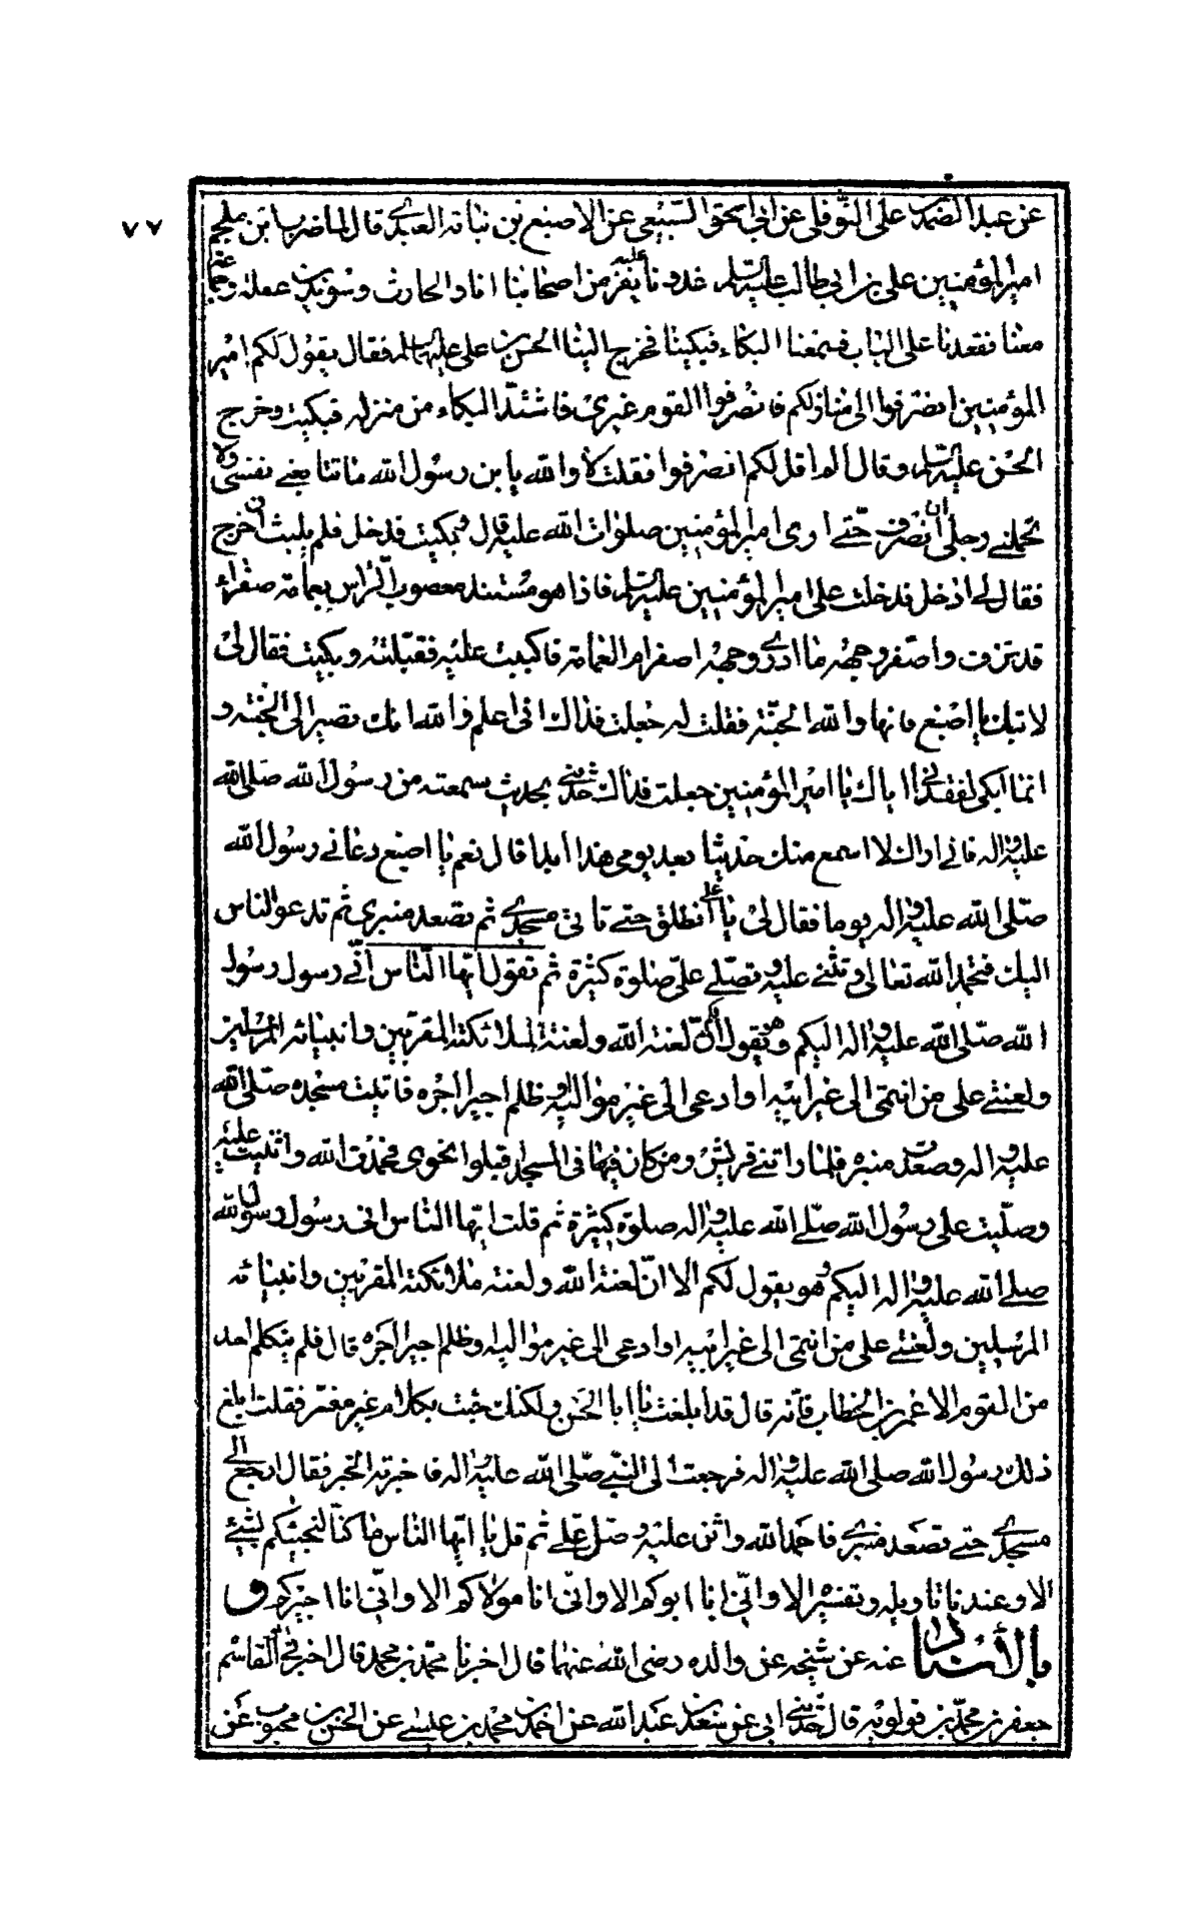 ٧٧
عن عبد الصمد بن علي النوفلي عن ابي اسحق السبيعي عن الاصبغ بن نباتة العبدي قال لما ضرب ابن ملجم
امير المؤمنين علي بن ابي طالب عليه السلم غدونا عليه نفر من اصحابنا انا والحارث وسويد بن غفلة وجماعة
معنا فقعدنا على الباب فسمعنا البكاء فبكينا فخرج الينا الحسن بن علي عليهما السلم فقال يقول لكم امير
المؤمنين انصرفوا الى منازلكم فانصرفوا القوم غيري فاشتد البكاء من منزله فبكيت وخرج
الحسن عليه السلم وقال الم اقل لكم انصرفوا فقلت لا والله يا بن رسول الله ما تتابعني نفسي ولا
تحملني رجلي ان انصرف حتى ارى امير المؤمنين صلوات الله عليه قال وبكيت فدخل فلم يلبث ان خرج
فقال لي ادخل فدخلت على امير المؤمنين عليه السلم فاذا هو مستند معصوب الراس بعمامة صفراء
قد نزف واصفر وجهه ما ادري وجهه اصفر ام العمامة فاكببت عليه فقبلته وبكيت فقال لي
لا تبك يا اصبغ فانها والله الجنة فقلت له جعلت فداك اني اعلم والله انك تصير الى الجنة و
انما ابكي لفقداني اياك يا امير المؤمنين جعلت فداك حدثني بحديث سمعته من رسول الله صلى الله
عليه واله فاني اراك لا اسمع منك حديثا بعد يومي هذا ابدا قال نعم يا اصبغ دعاني رسول الله
صلى الله عليه واله يوما فقال لي يا علي انطلق حتى تاتي مسجدي ثم تصعد منبري ثم تدعو الناس
اليك فتحمد الله تعالى وتثني عليه وتصلي علي صلوة كثيرة ثم تقول ايها الناس اني رسول رسول
الله صلى الله عليه واله اليكم وهو يقول لكم ان لعنة الله ولعنة الملائكته المقربين وانبيائه المرسلين
ولعنتي على من انتمى الى غير ابيه او ادعى الى غير مواليه او ظلم اجيرا اجره فاتيت مسجده صلى الله
عليه واله وصعدت منبره فلما راتني قريش ومن كان فيها في المسجد اقبلوا نحوي فحمدت الله واثنيت عليه
وصليت على رسول الله صلى الله عليه واله صلوة كثيرة ثم قلت ايها الناس اني رسول رسول الله
صلى الله عليه واله اليكم وهو يقول لكم الا ان لعنة الله ولعنة ملائكته المقربين وانبيائه
المرسلين ولعنتي على من انتمى الى غير ابيه او ادعى الى غير مواليه وظلم اجيرا اجره قال فلم يتكلم احد
من القوم الا عمر بن الخطاب فانه قال قد ابلغت يا ابا الحسن ولكنك جئت بكلام غير مفسر فقلت ابلغ
ذلك رسول الله صلى الله عليه واله فرجعت الى النبي صلى الله عليه واله فاخبرته الخبر فقال ارجع الى
مسجدي حتى تصعد منبري فاحمد الله واثن عليه وصل علي ثم قل يا ايها الناس ما كنا لنجيئكم بشيء
الا وعندنا تاويله وتفسيره الا واني انا ابوكم الا واني انا مولاكم الا واني انا اجيركم و
بالاسناد عنه عن شيخه عن والده رضي الله عنهما قال اخبرنا محمد بن محمد قال اخبرني ابو القاسم
جعفر بن محمد بن قولويه قال حدثني ابي عن سعد بن عبد الله عن احمد بن محمد بن عيسى عن الحسن بن محبوب عن